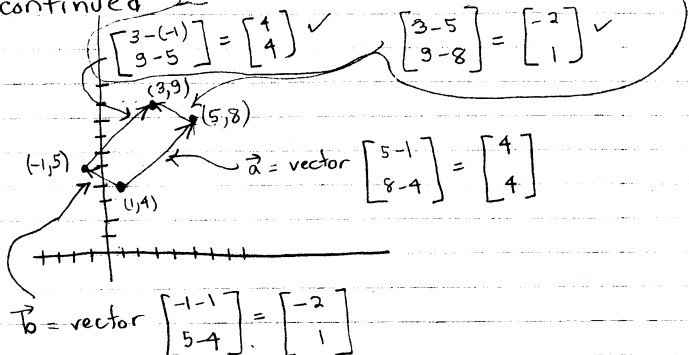 continued
[3-(-1) 9-5] = [4 4] ✓ [3-5 9-8] = [-2 1] ✓
(3,9)
(5,8)
(-1,5)
a⃗ = vector [5-1 8-4] = [4 4]
(1,4)
b⃗ = vector [-1-1 5-4] = [-2 1]